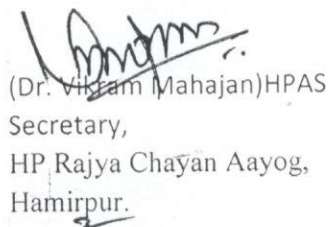 (Dr. Vikram Mahajan)HPAS
Secretary,
HP Rajya Chayan Aayog,
Hamirpur.